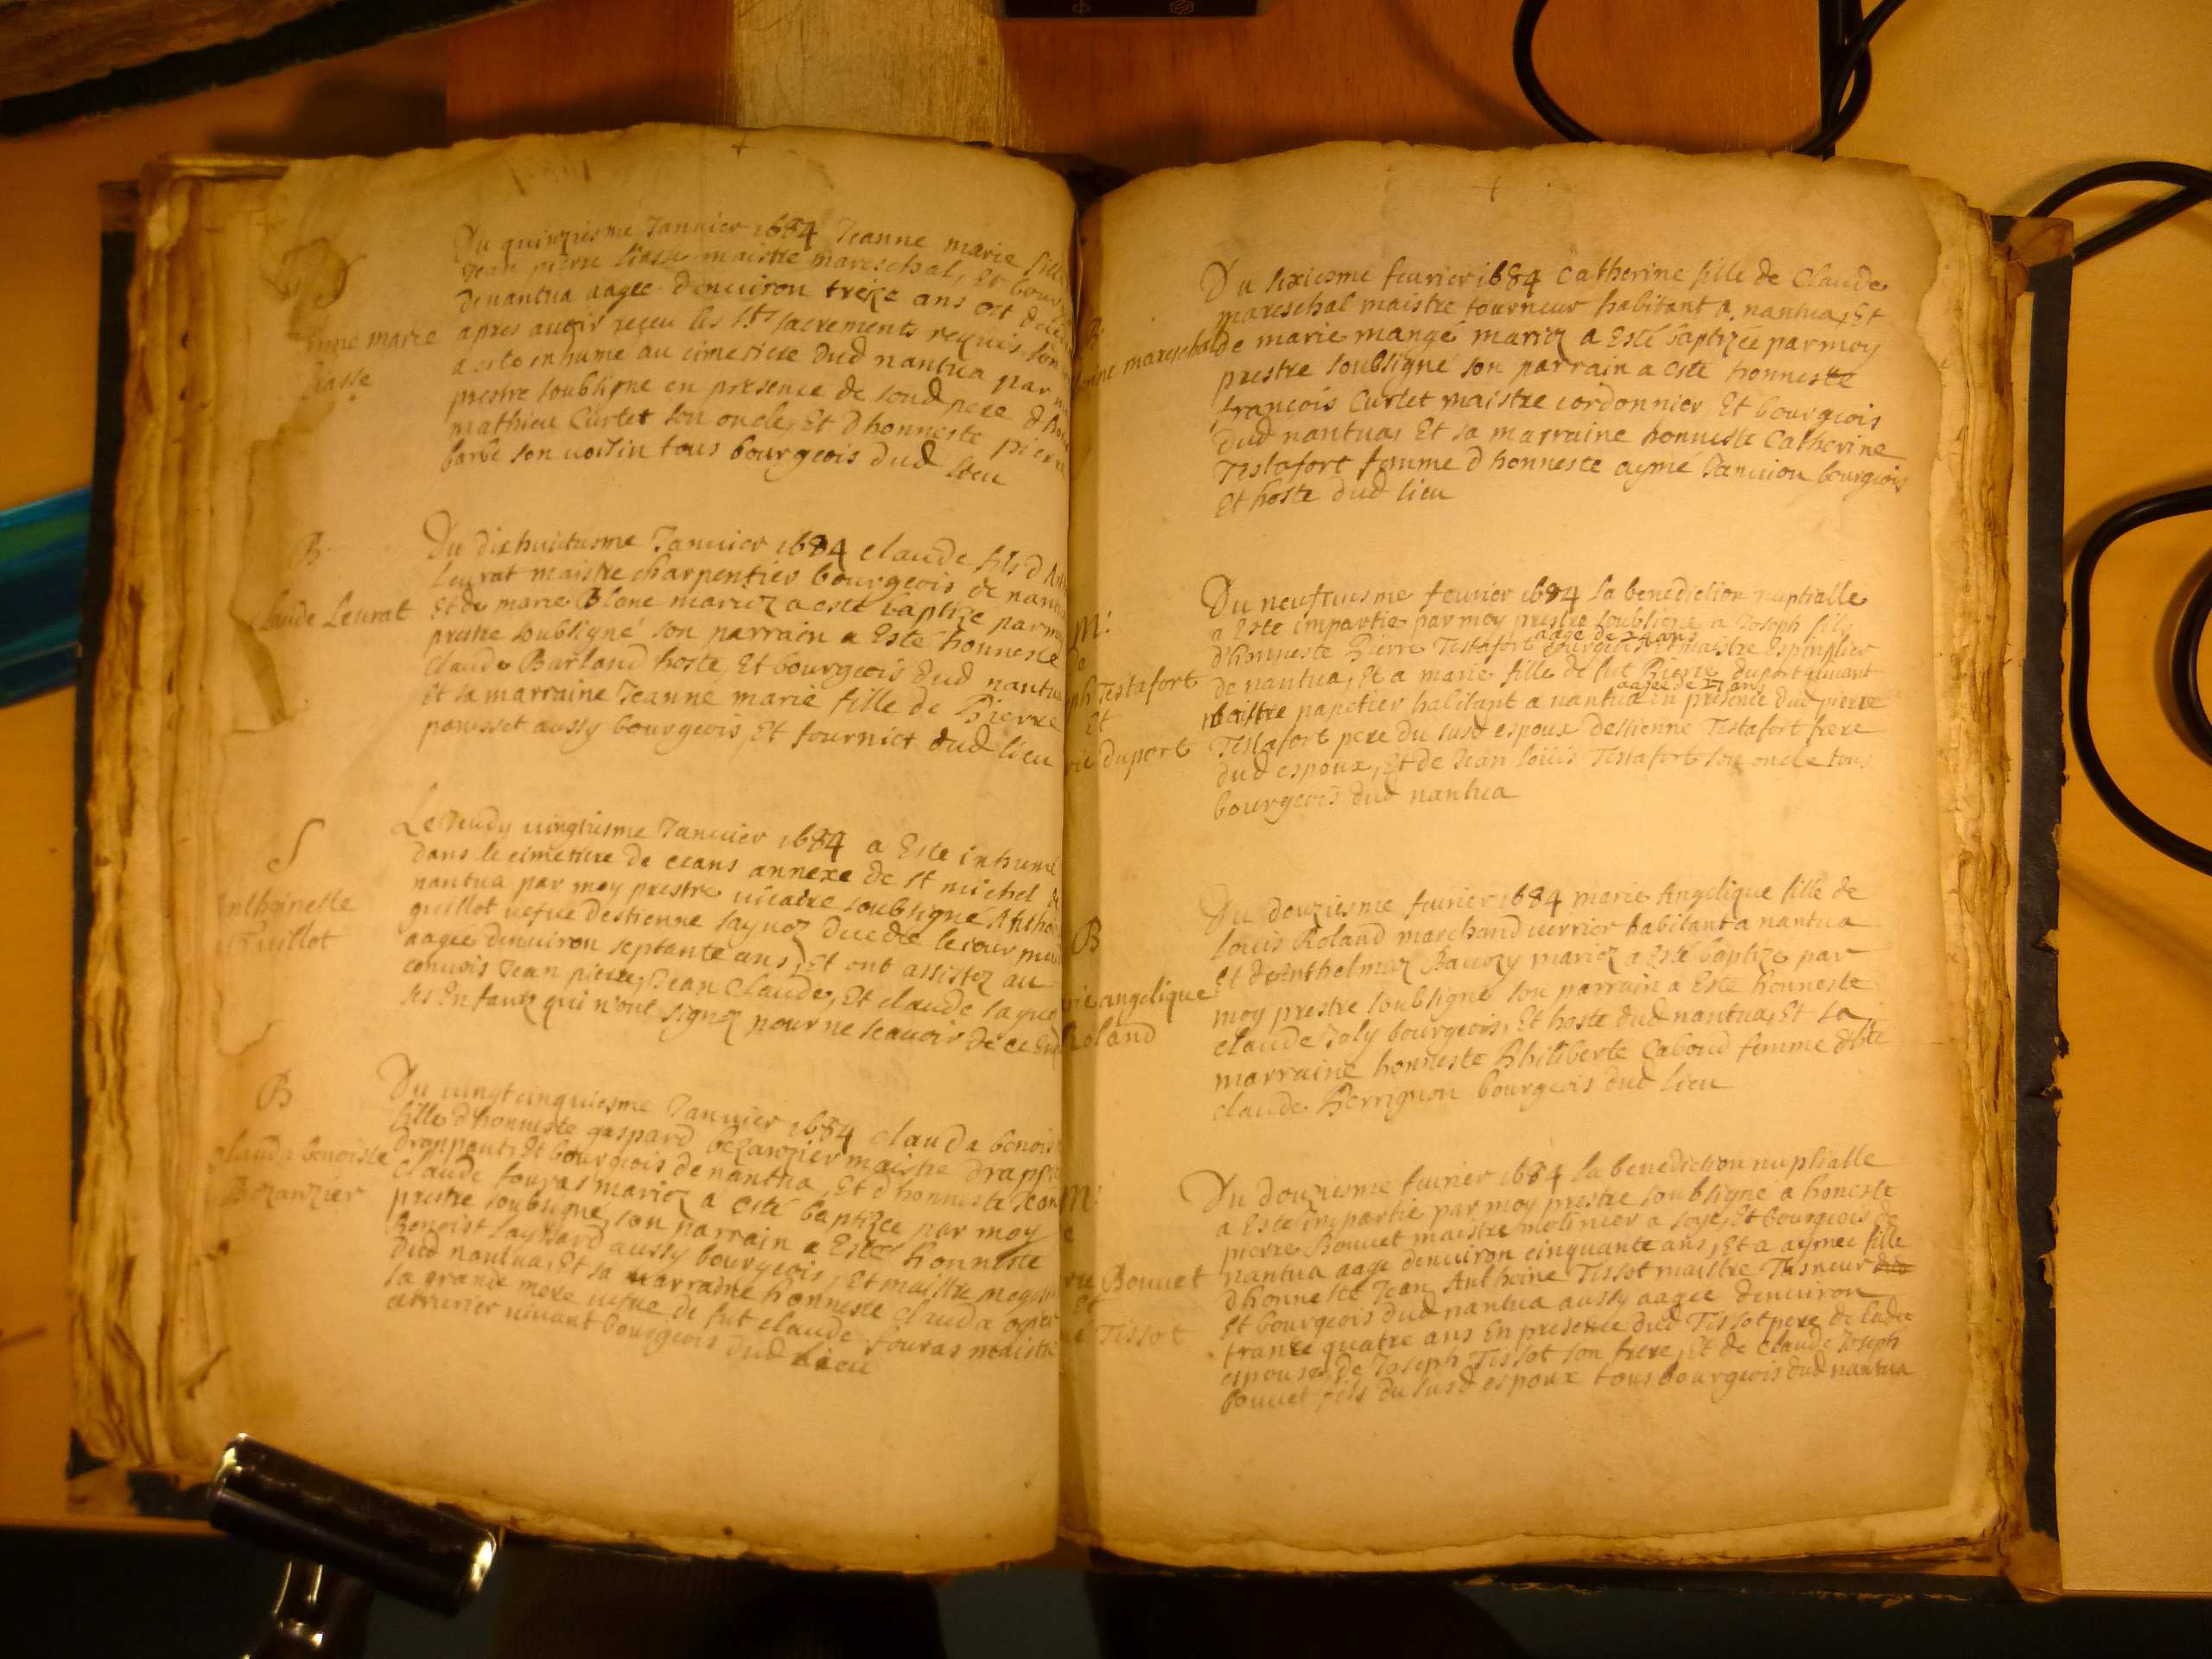 Du quinziesme Januier 1684 Jeanne marie fille
Jean pierre liasse maistre mareschal, Et bour
De nantua aagee denuiron treize ans est dece
apres auoir reçeu les Sts sacrements requis son
a esté inhume au cimetiere dud nantua par m
prestre soubsigne en presence de sond pere d hon
mathieu Curtet son oncle, Et d honneste pierre
barbe son uoisin tous bourgeois dud lieu
nne marie
liasse
B.
laude Leurat
Du dixhuictiesme Januier 1684 claude fils d An
Leurat maistre charpentier bourgeois de nantu
Et de marie Blanc mariez a esté baptize par mo
prestre soubsigné son parrain a Esté honneste
claude Barland hoste, Et bourgeois dud nantua
Et sa marraine Jeanne marie fille de Pierre
panisset aussy bourgeois, Et fournier dud lieu
S
Anthoinette
Guillot
Le Jeudy uingtiesme Januier 1684 a Esté inhumé
dans le cimetiere de ceans annexe de St michel de
nantua par moy prestre uicaire soubsigne Antho
guillot uefue destienne sayuez
aagee denuiron septante ans, Et ont assistez au
conuois Jean pierre, Jean Claude, Et claude sayuez
ses Enfants qui n'ont signez pour ne scauoir de ce En
B
Clauda benoiste
Bezanzier
Du uingt cinquiesme Januier 1684 clauda benois
fille d honneste gaspard bezanzier maistre drappie
drappant, Et bourgeois de nantua, Et d honneste Jean
claude fouras mariez a esté baptizée par moy
prestre soubsigné, son parrain a Esté honneste
Benoist layssard aussy bourgeois, Et maistre
dud nantua, Et sa marraine honneste clauda
sa grande mere uefue de fut claude fouras maistre
uiuant bourgeois dud lieu
B.
erine mareschal
Du sixiesme feurier 1684 Catherine fille de Claude
mareschal maistre tourneur habitant a nantua, Et
de marie mangé mariez a Esté baptizée par moy
prestre soubsigné son parrain a esté honneste
françois Curtet maistre cordonnier, Et bourgeois
dud nantua, Et sa marraine honneste Catherine
Testafort femme d honneste aymé Januion bourgeois
Et hoste dud lieu
M:
de
ph Testafort
Et
rie duport
Du neufuiesme feurier 1684 la benediction nuptialle
a Esté impartie par moy prestre soubsigne a Joseph fils
aagé de 24 ans
d'honneste Pierre Testafort bourgeois Et maistre Espinglier
de nantua, Et a marie fille de fut Pierre duport uiuant
aagee de 27 ans
maistre papetier habitant a nantua en presence dud pierre
Testafort pere du susd espoux destienne Testafort frere
dud espoux, Et de Jean loüis Testafort son oncle tous
bourgeois dud nantua
B
rie angelique
Roland
Du douziesme feurier 1684 marie Angelique fille de
louis Roland marchand uerrier habitant a nantua
Et d Anthelmaz mariez a Esté baptize par
moy prestre soubsigné son parrain a Esté honneste
claude Joly bourgeois, Et hoste dud nantua, Et sa
marraine honneste Philiberte Caboud femme dhte
claude Perrignon bourgeois dud lieu
M:
e
rre Bouuet
Et
é Tissot
Du douziesme feurier 1684 la benediction nuptialle
a Esté impartie par moy prestre soubsigné a honeste
pierre Bouuet maistre molinier a soye, Et bourgeois de
nantua aage denuiron cinquante ans, Et a aymee fille
d honneste Jean Anthoine Tissot maistre Tisneur dud
Et bourgeois dud nantua aussy aagee denuiron
trante quatre ans En presence dud Tissot pere de ladte
espouse, de Joseph Tissot son frere, Et de claude Joseph
bouuet fils du susd espoux tous bourgeois dud nantua